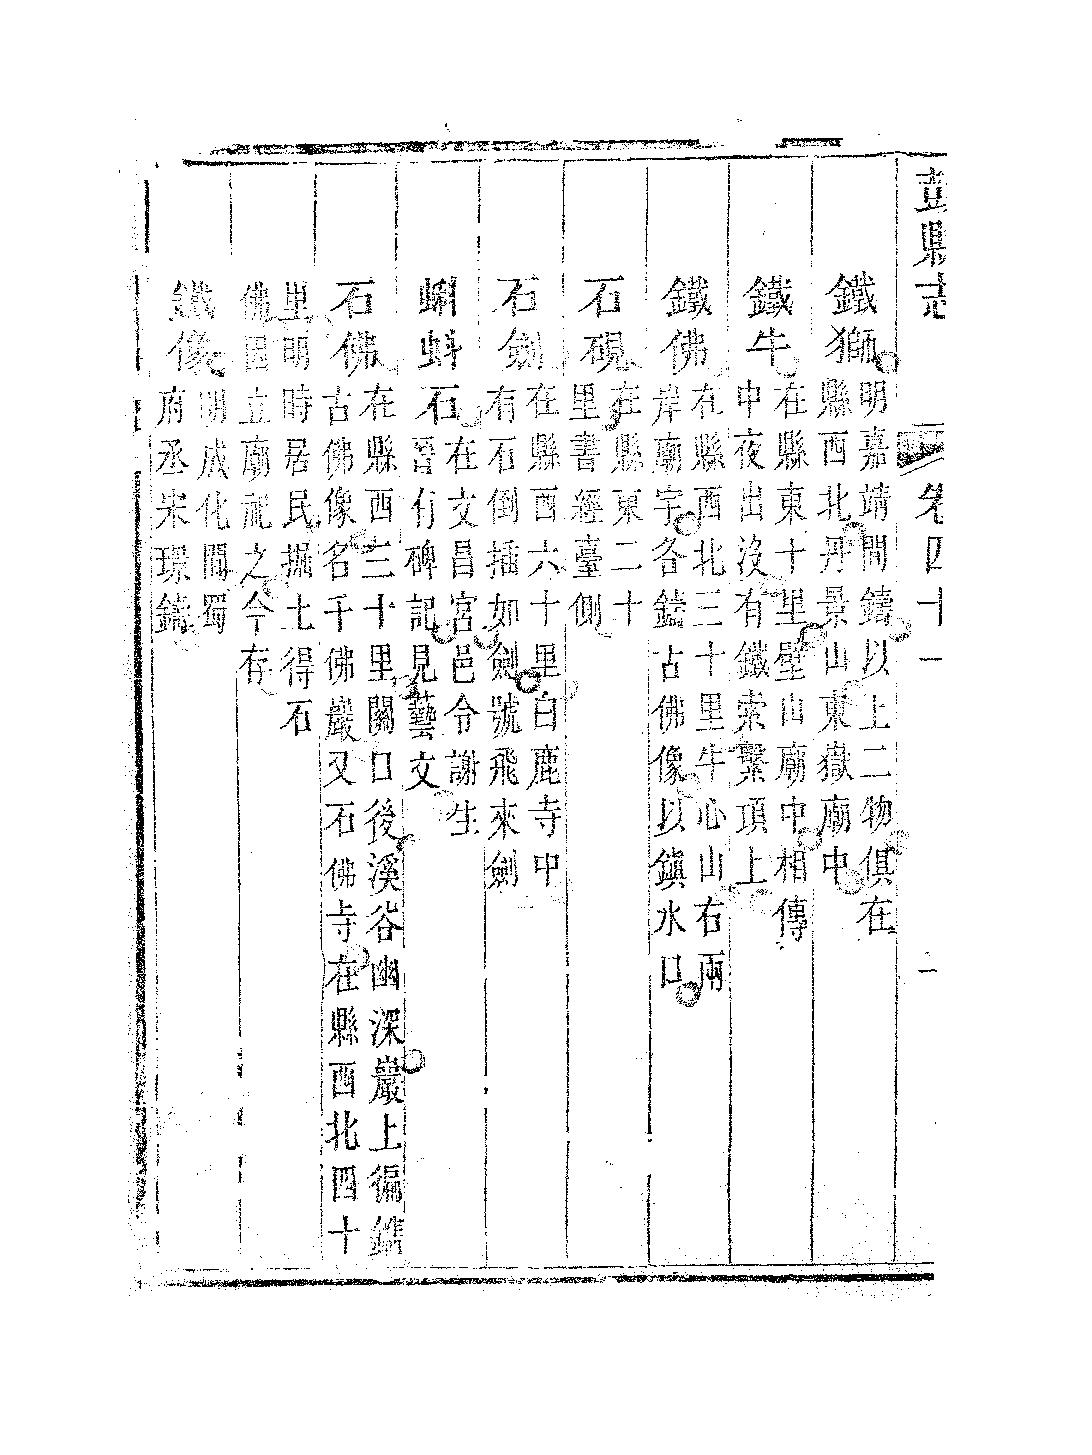 彭縣志 卷四十一 一
鐵獅 明嘉靖間鑄以上二物俱在
縣西北丹景山東嶽廟中
鐵牛 在縣東十里壁山廟中相傳
中夜出沒有鐵索繫項上
鐵佛 在縣西北三十里牛心山右兩
岸廟宇各鑄古佛像以鎮水口
石硯 在縣東二十
里書經臺側
石劍 在縣西六十里白鹿寺中
有石倒插如劍號飛來劍
蝌蚪石 在文昌宮邑令謝生
晉有碑記見藝文
石佛 在縣西三十里關口後溪谷幽深巖上徧鐫
古佛像名千佛巖又石佛寺在縣西北四十
里明時居民掘土得石
佛因立廟祀之今存
鐵像 明成化間蜀
府丞宋璟鑄